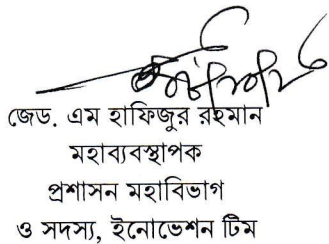 জেড. এম হাফিজুর রহমান
মহাব্যবস্থাপক
প্রশাসন মহাবিভাগ
ও সদস্য, ইনোভেশন টিম